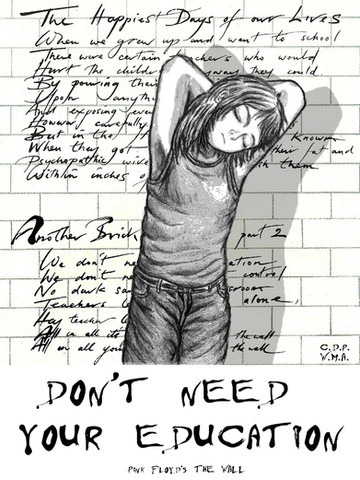 The Happiest Days of our Lives
When we grew up and went to school
There were certain teachers who would
Hurt the childre way they could
By pouring their
Upon anythi
And exposing ever
However carefully
But in the Known
When they got their fat and
Psychopathic wive them
Within inches o
Another Brick part 2
We don't ne ation
We don't ne control
No dark sa sroom
Teachers alone,
Hey teacher
All in all it's the wall
All in all you the wall
C.D.P.
W.M.A.
DON'T NEED
YOUR EDUCATION
PINK FLOYD'S THE WALL